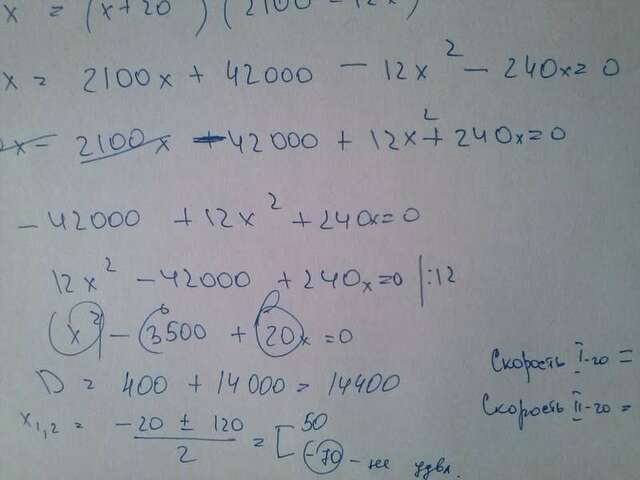 x = (x+20) (2100 - 12x)
x = 2100x + 42000 - 12x² - 240x = 0
0x - 2100x - 42000 + 12x² + 240x = 0
- 42000 + 12x² + 240x = 0
12x² - 42000 + 240x = 0 | :12
x² - 3500 + 20x = 0
D = 400 + 14000 = 14400
x1,2 = -20 ± 120 / 2 = [ 50
-70 - не удвл.
Скорость I-го =
Скорость II-го =